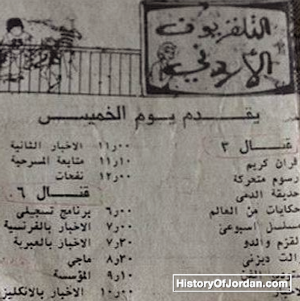 التلفزيون
الأردني
يقدم يوم الخميس
قنال ٣
قرآن كريم
رسوم متحركة
حديقة الدمى
حكايات من العالم
مسلسل اسبوعي
لقزم والدو
والت ديزني
١١٫٠٠ الاخبار الثانية
١١٫١٠ متابعة المسرحية
١٢٫٠٠ نفحات
قنال ٦
٦٫٠٠ برنامج تسجيلي
٧٫٠٠ الاخبار بالفرنسية
٧٫٣٠ الاخبار بالعبرية
٨٫٣٠ ماجي
٩٫١٠ المؤسسة
١٠٫٠٠ الاخبار بالانكليز
HistoryOfJordan.com